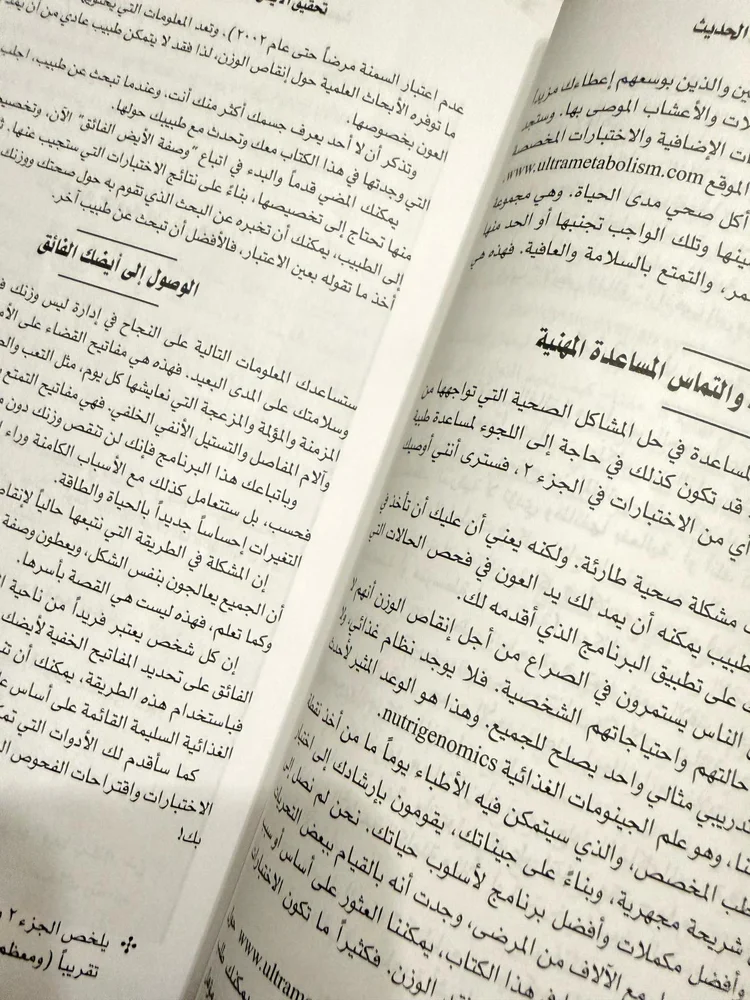 الحديث
ين والذين بوسعهم إعطاءك مزيدا
لات والأعشاب الموصى بها. وستجد
ات الإضافية والاختبارات المخصصة
الموقع www.ultrametabolism.com.
أكل صحي مدى الحياة. وهي مجموعة
ينها وتلك الواجب تجنبها أو الحد منها
مر، والتمتع بالسلامة والعافية. فهذه هي
والتماس المساعدة المهنية
لمساعدة في حل المشاكل الصحية التي تواجهها من
قد تكون كذلك في حاجة إلى اللجوء لمساعدة طبية
أي من الاختبارات في الجزء ٢، فسترى أنني أوصيك
مشكلة صحية طارئة. ولكنه يعني أن عليك أن تأخذ في
طبيب يمكنه أن يمد لك يد العون في فحص الحالات التي
على تطبيق البرنامج الذي أقدمه لك.
الناس يستمرون في الصراع من أجل إنقاص الوزن أنهم لا
حالتهم واحتياجاتهم الشخصية. فلا يوجد نظام غذائي، ولا
تدريبي مثالي واحد يصلح للجميع. وهذا هو الوعد المثير لأحدث
نا، وهو علم الجينومات الغذائية nutrigenomics.
لطب المخصص، والذي سيتمكن فيه الأطباء يوماً ما من أخذ نقطة
شريحة مجهرية، وبناءً على جيناتك، يقومون بإرشادك إلى اختيار
وأفضل مكملات وأفضل برنامج لأسلوب حياتك. نحن لم نصل إلى
مع الآلاف من المرضى، وجدت أنه بالقيام ببعض التحريات
في هذا الكتاب، يمكننا العثور على أساس أو سبب
الوزن. فكثيراً ما تكون الاختبارات
www.ultrame
يمكنك
تحقيق
عدم اعتبار السمنة مرضاً حتى عام ٢٠٠٢)، وتعد المعلومات التي
ما توفره الأبحاث العلمية حول إنقاص الوزن، لذا فقد لا يتمكن طبيب عادي من أن يمد
العون بخصوصها.
وتذكر أن لا أحد يعرف جسمك أكثر منك أنت. وعندما تبحث عن طبيب، اجلب
التي وجدتها في هذا الكتاب معك وتحدث مع طبيبك حولها.
يمكنك المضي قدماً والبدء في اتباع "وصفة الأيض الفائق" الآن، وتخصيص
منها تحتاج إلى تخصيصها، بناءً على نتائج الاختبارات التي ستجيب عنها.
إلى الطبيب، يمكنك أن تخبره عن البحث الذي تقوم به حول صحتك ووزنك
أخذ ما تقوله بعين الاعتبار، فالأفضل أن تبحث عن طبيب آخر.
الوصول إلى أيضك الفائق
ستساعدك المعلومات التالية على النجاح في إدارة ليس وزنك
وسلامتك على المدى البعيد. فهذه هي مفاتيح القضاء على
المزمنة والمؤلمة والمزعجة التي نعايشها كل يوم، مثل التعب
وآلام المفاصل والتستيل الأنفي الخلفي. فهي مفاتيح التمتع
وباتباعك هذا البرنامج فإنك لن تنقص وزنك دون
فحسب، بل ستتعامل كذلك مع الأسباب الكامنة وراء
التغيرات إحساساً جديداً بالحياة والطاقة.
إن المشكلة في الطريقة التي نتبعها حالياً لإنقاص
أن الجميع يعالجون بنفس الشكل، ويعطون وصفة
وكما تعلم، فهذه ليست هي القصة بأسرها.
إن كل شخص يعتبر فريداً من ناحية
الفائق على تحديد المفاتيح الخفية لأيضك
فباستخدام هذه الطريقة، يمكنك أن
الغذائية السليمة القائمة على أساس
كما سأقدم لك الأدوات التي
الاختبارات واقتراحات الفحوص
بك!
يلخص الجزء ٢
تقريباً (ومعظم